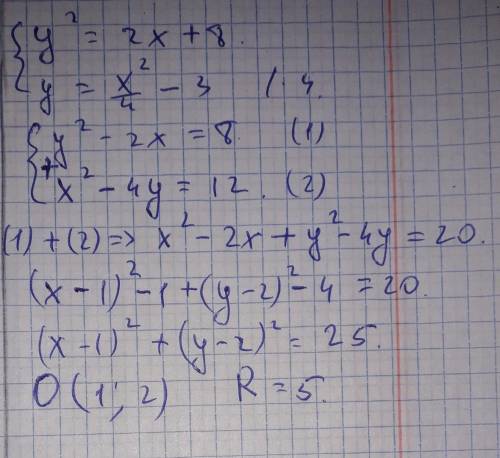 { y² = 2x + 8.
y = x²/4 - 3 | · 4.
{ y² - 2x = 8 (1)
+ x² - 4y = 12. (2)
(1) + (2) => x² - 2x + y² - 4y = 20.
(x - 1)² - 1 + (y - 2)² - 4 = 20.
(x - 1)² + (y - 2)² = 25.
O (1; 2) R = 5.